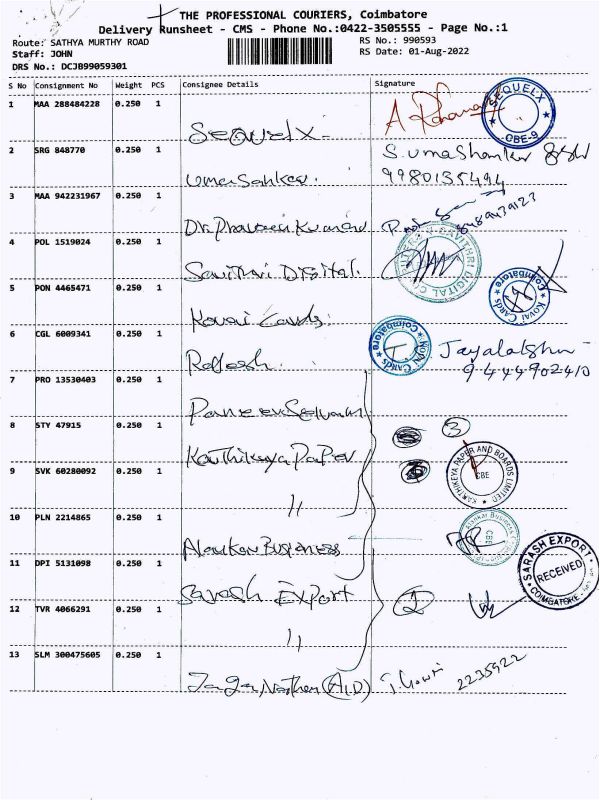 THE PROFESSIONAL COURIERS, Coimbatore
Delivery Runsheet - CMS - Phone No.:0422-3505555 - Page No.:1
Route: SATHYA MURTHY ROAD
RS No.: 990593
Staff: JOHN
RS Date: 01-Aug-2022
DRS No.: DCJB99059301
S No Consignment No Weight PCS Consignee Details Signature
1 MAA 288484228 0.250 1
Sequelx
SEQUELX
CBE-9
2 SRG 848770 0.250 1
S.umaShankar
Umasankar.
9980135494
3 MAA 942231967 0.250 1
Dr. Praveen Kumar
4 POL 1519024 0.250 1
SAVITHRI DIGITAL
Savithri Digital.
5 PON 4465471 0.250 1
Kovai Cards.
★ KOVAI CARDS ★ Coimbatore
6 CGL 6009341 0.250 1
★ KOVAI CARDS ★ Coimbatore
Jayalakshmi
Rajesh.
9444902410
7 PRO 13530403 0.250 1
Panneerselvam
8 STY 47915 0.250 1
3
Karthikeya Paper
KARTHIKEYA PAPER AND BOARDS LIMITED
CBE
9 SVK 60280092 0.250 1
〃
10 PLN 2214865 0.250 1
Alankar Business
CBE
11 DPI 5131098 0.250 1
SARASH EXPORT
RECEIVED
COIMBATORE
Sarash Export
12 TVR 4066291 0.250 1
2
〃
13 SLM 300475605 0.250 1
Jaga Nathan (A.D)
J. Gowri
2235922